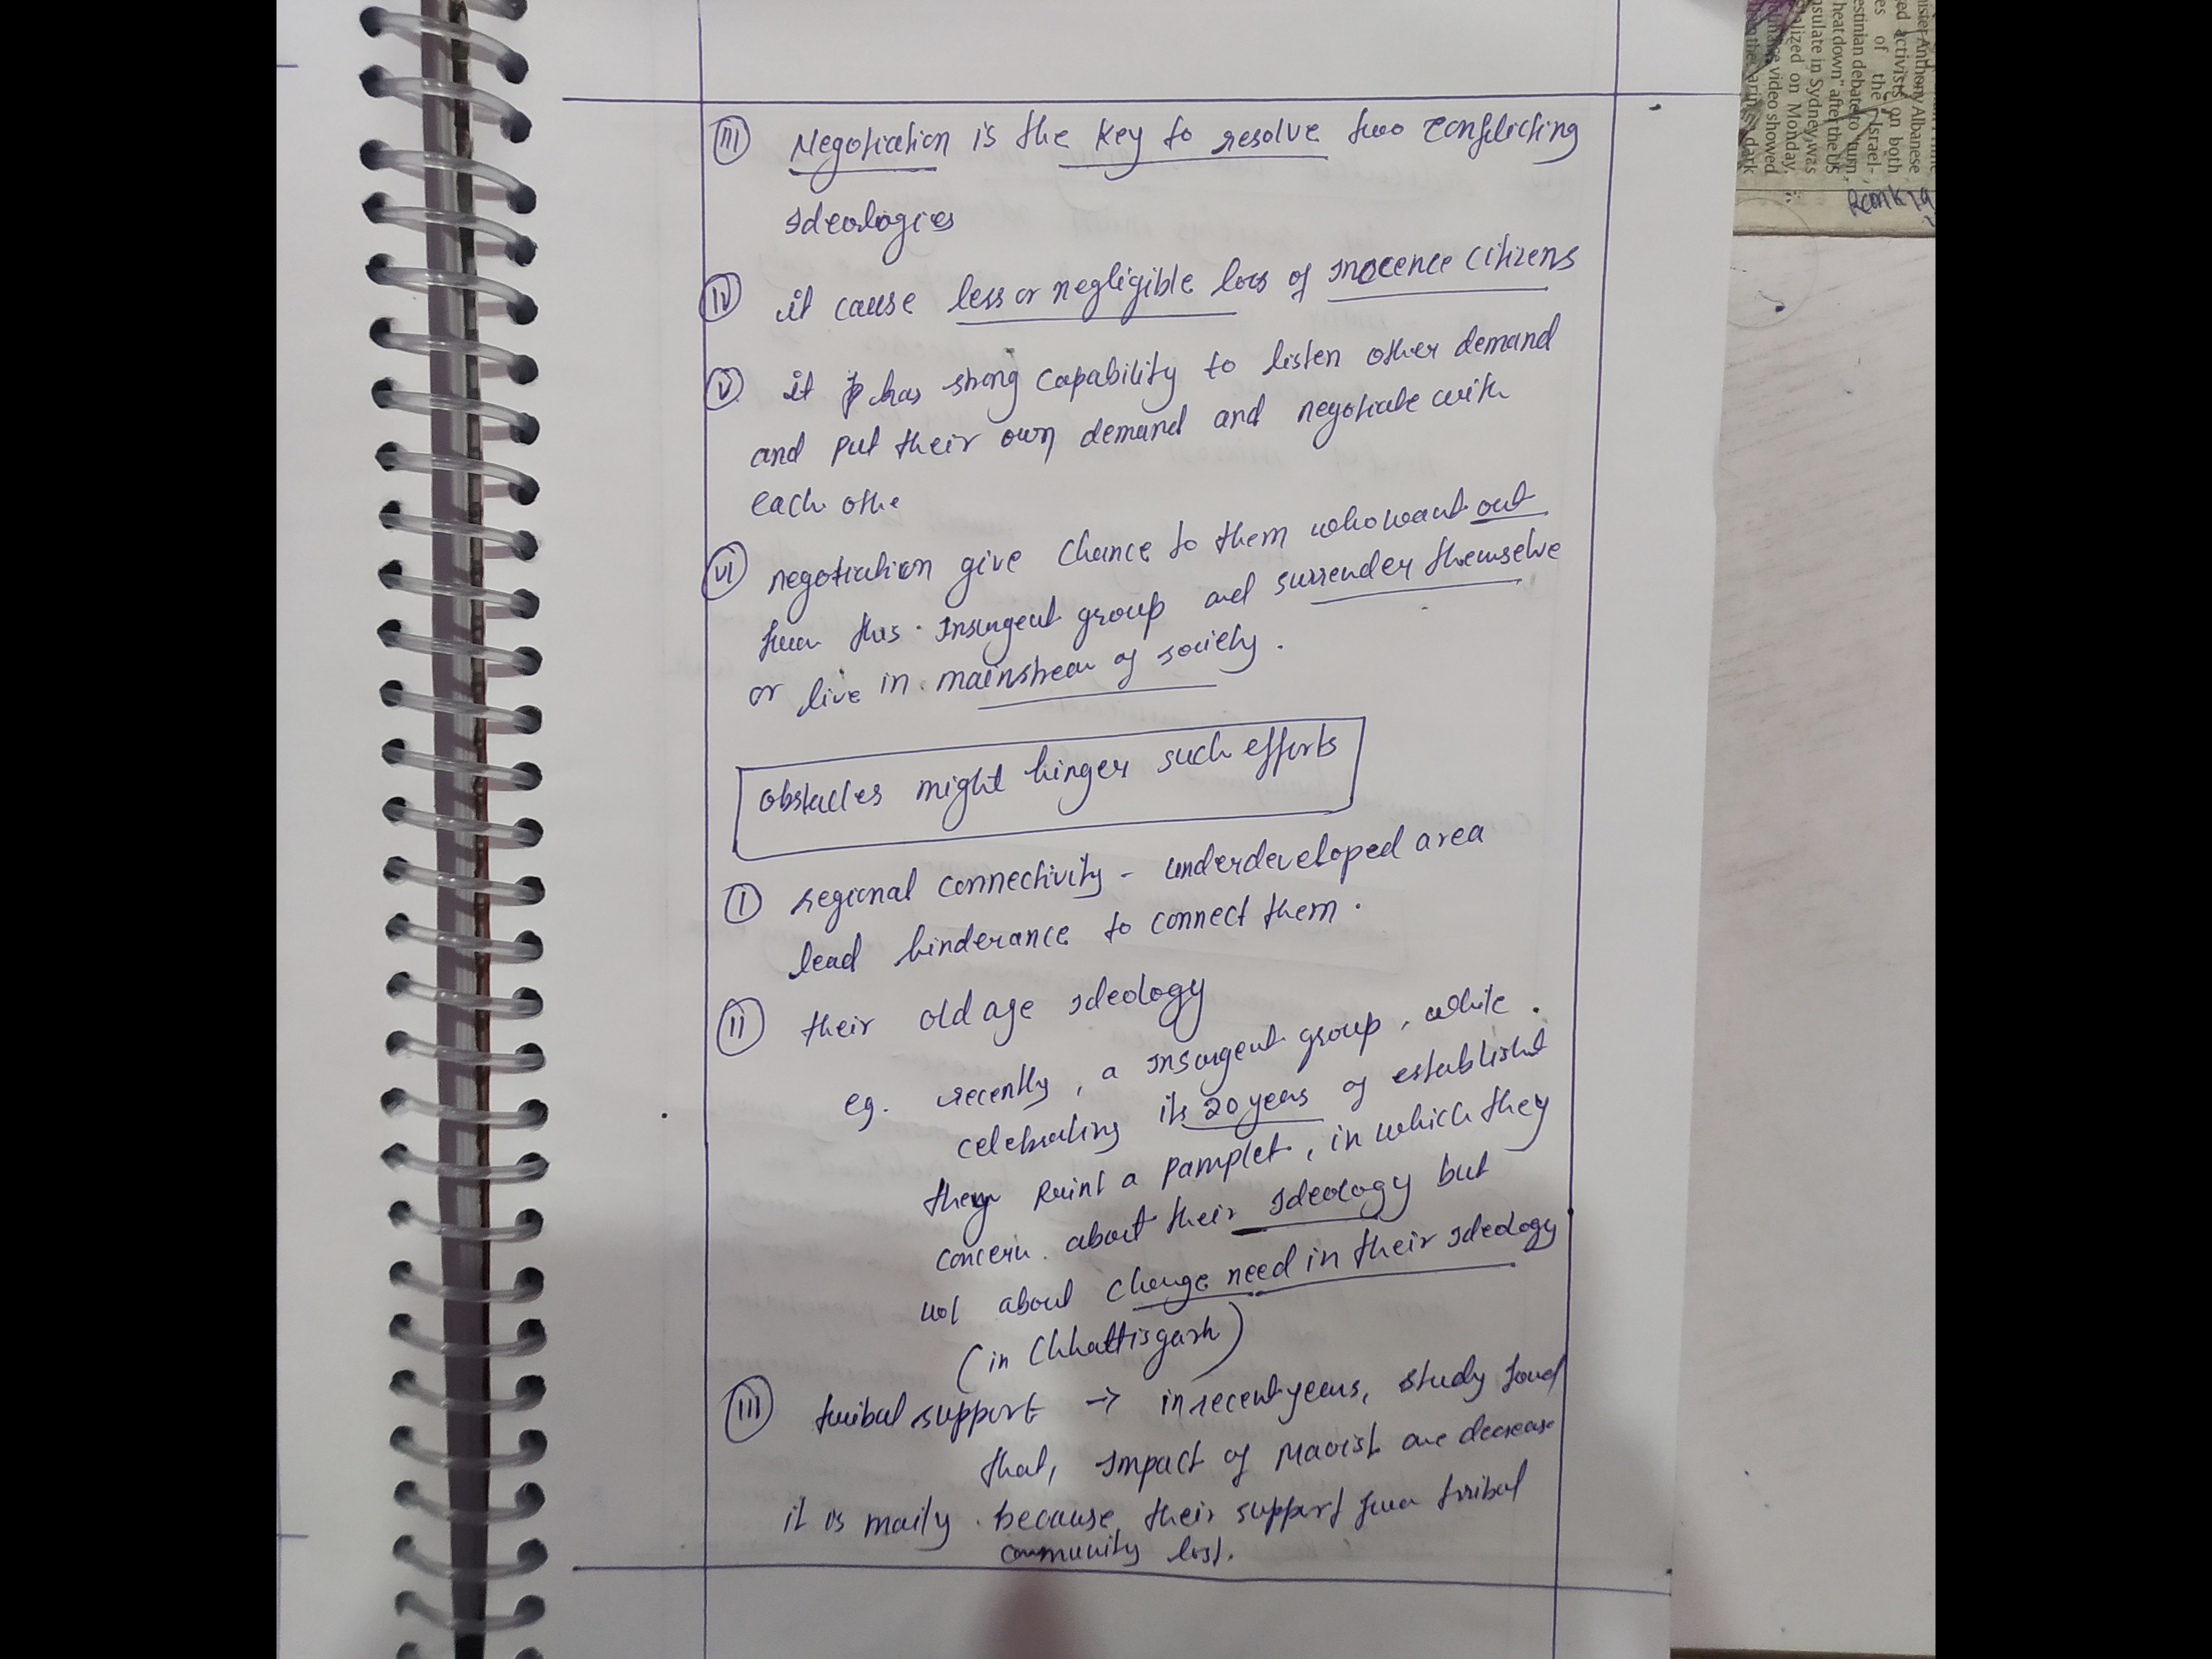 (III) Negotiation is the key to resolve two conflicting
Ideologies
(IV) it cause less or negligible loss of Inocence citizens
(V) it has strong capability to listen other demand
and put their own demand and negotiate with
each othe
(VI) negotiation give chance to them who want out
from this Insurgent group and surrender themselve
or live in mainstream of society.
obstacles might hinger such efforts
(I) regional connectivity - underdeveloped area
lead hinderance to connect them.
(II) their old age Ideology
eg. recently, a Insurgent group, while
celebrating its 20 years of established
they print a pamplet, in which they
concern about their Ideology but
not about change need in their Ideology
(in Chhattisgarh)
(III) tribal support → in recent years, study found
that, Impact of Maoist are decrease
it is maily because their support from tribal
community lost.
inister Anthony Albanese
ed activists on both
es of the Israel-
estinian debate to "turn
heat down" after the US
nsulate in Sydney was
alized on Monday.
video showed
dark